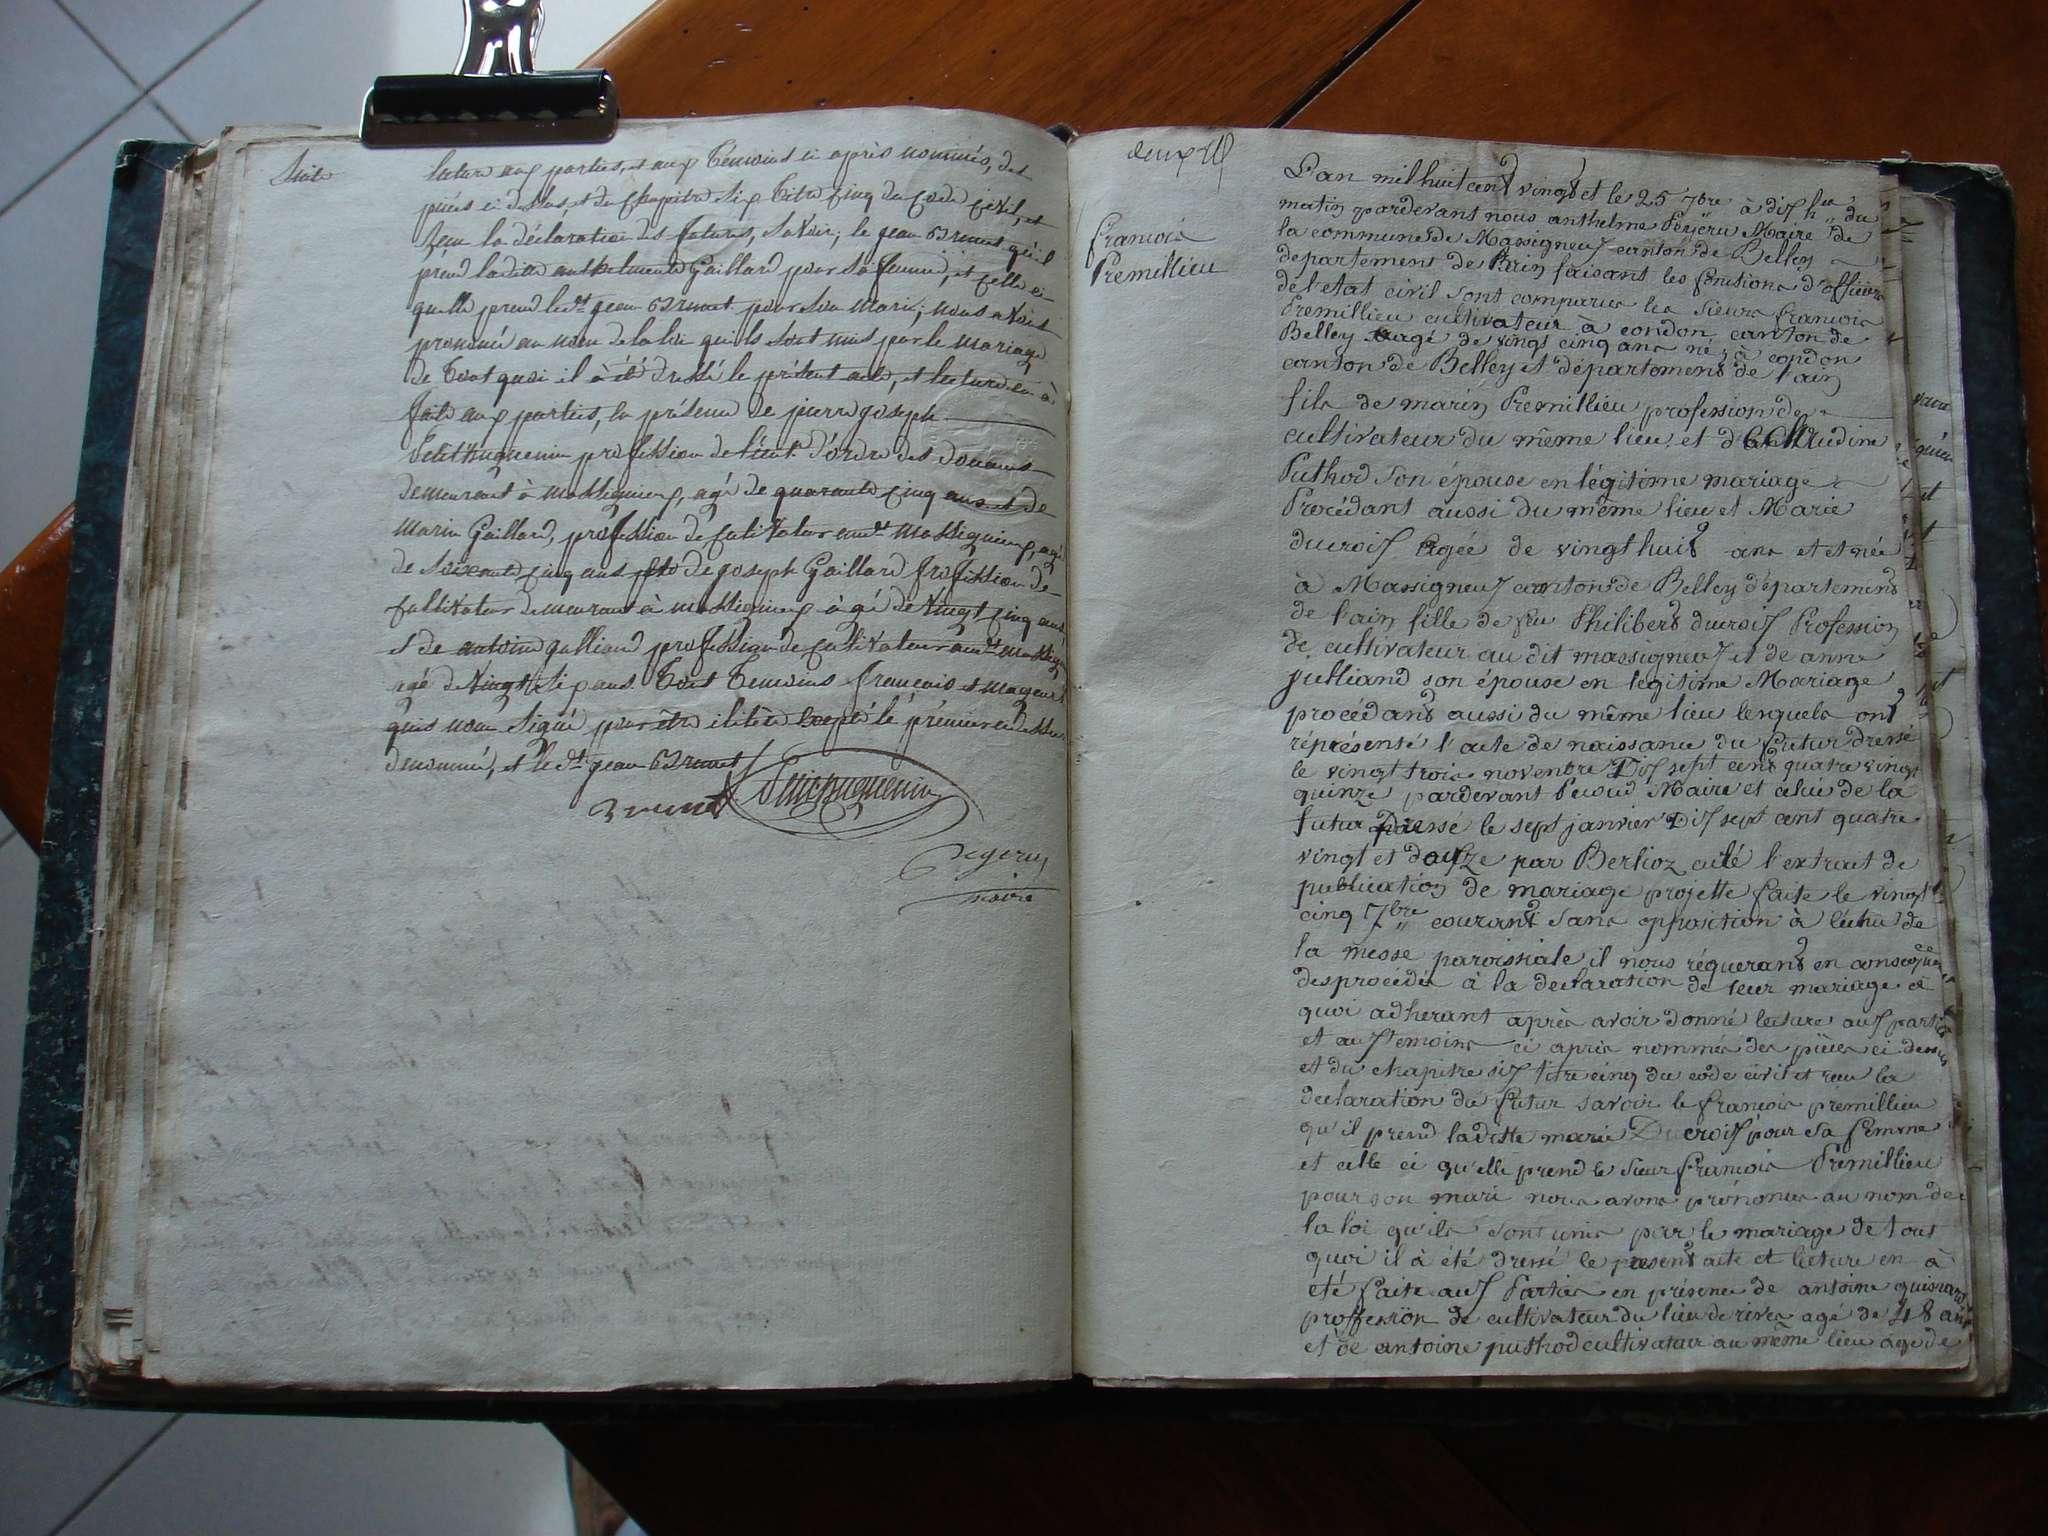 Suite
lecture aux parties, et aux temoins ci après nommés, des
pièces ci dessus, et du chapitre six titre cinq du code civil, et
reçu la déclaration des futures, savoir; le jean Brunet qu'il
prend ladite anthelmette Gaillard pour sa femme, et celle ci
quelle prend le dt jean Brunet pour son mari; nous avons
prononcé au nom de la loi qu'ils sont unis par le mariage
de tout quoi il à été dressé le présent acte, et lecture en à
faite aux parties, en présence de pierre joseph
petithuguenin profession de lieut. d'ordre des douanes
demeurant à massignieux, agé de quarante cinq ans et de
Marin Gaillard, profession de cultivateur audt massignieux, agé
de soixante cinq ans et de joseph Gaillard profession de
cultivateur demeurant à massignieux àgé de vingt cinq ans
et de antoine julliand profession de cultivateur audt massign
agé de vingt six ans tout temoins francois et mageurs
quis nom signé pour être ilitèré excepté le prémier ci dessus
denommé, et le dt jean Brunet
Brunet petithuguenin
Peyerin
maire
deux
francois
Premillieu
L'an mil huit cent vingt et le 25 7bre à dix hre du
matin pardevant nous anthelme Peÿeru Maire de
la commune de Massigneux canton de Belley
departement de l'ain faisant les fonctions d'officier
de l'etat civil sont comparus les sieurs francois
Premillieu cultivateur à condon canton de
Belley agé de vingt cinq ans né à condon
canton de Belley et département de l'ain
fils de marin Premillieu profession de
cultivateur du même lieu et d' Claudine
Puthod son épouse en légitime mariage
Procédant aussi du même lieu et Marie
ducroix agée de vingt huit ans et et née
à Massigneux canton de Belley département
de l'ain fille de feu Philibert ducroix Profession
de cultivateur au dit massigneux et de anne
julliand son épouse en legitime Mariage
procédant aussi du même lieu lesquels ont
réprésenté l'acte de naissance du futur dressé
le vingt trois novembre Dix sept cent quatre vingt
quinze pardevant Maire et celui de la
futur Dressé le sept janvier Dix sept cent quatre
vingt et douze par Berlioz curé l'extrait de
publication de mariage projetté faite le vingt
cinq 7bre courant sans opposition à l'échue de
la messe paroissiale il nous réquerant en conseque
desprocédée à la declaration de leur mariage à
quoi adherant après avoir donné lecture aux parties
et aux temoins ci après nommés des pièces ci dessus
et du chapitre six titre cinq du code civil et reçu la
declaration du futur savoir le francois premillieu
qu'il prend laditte marie Ducroix pour sa femme
et celle ci qu'elle prend le sieur francois Premillieu
pour son mari nous avons prénoncés au nom de
la loi qu'ils sont unis par le mariage de tout
quoi il à été dressé le present acte et lecture en à
été faite aux Parties en présence de antoine quinard
proffession de cultivateur du lieu de rives agé de 48 ans
et de antoine puthod cultivateur au même lieu age de